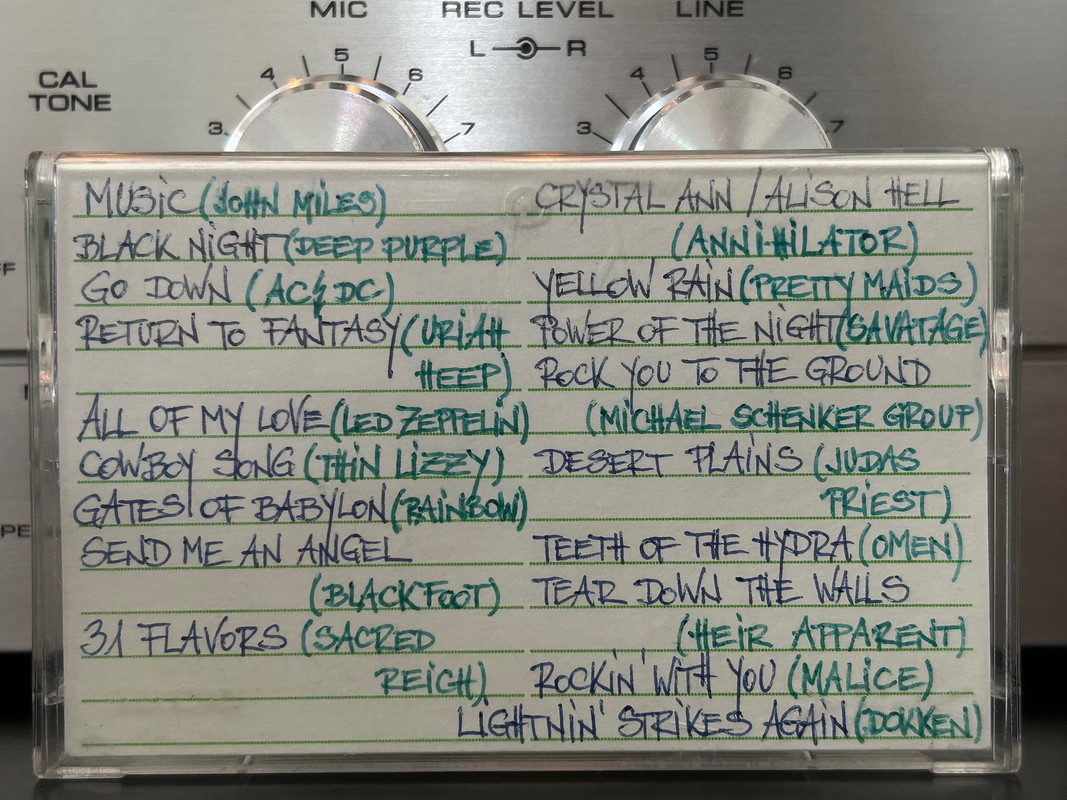 MIC REC LEVEL LINE
L R
CAL
TONE
3 4 5 6 7
3 4 5 6 7
MUSIC (JOHN MILES)
BLACK NIGHT (DEEP PURPLE)
GO DOWN (AC⚡DC)
RETURN TO FANTASY (URIAH
HEEP)
ALL OF MY LOVE (LED ZEPPELIN)
COWBOY SONG (THIN LIZZY)
GATES OF BABYLON (RAINBOW)
SEND ME AN ANGEL
(BLACKFOOT)
31 FLAVORS (SACRED
REICH)
CRYSTAL ANN / ALISON HELL
(ANNIHILATOR)
YELLOW RAIN (PRETTY MAIDS)
POWER OF THE NIGHT (SAVATAGE)
ROCK YOU TO THE GROUND
(MICHAEL SCHENKER GROUP)
DESERT PLAINS (JUDAS
PRIEST)
TEETH OF THE HYDRA (OMEN)
TEAR DOWN THE WALLS
(HEIR APPARENT)
ROCKIN' WITH YOU (MALICE)
LIGHTNIN' STRIKES AGAIN (DOKKEN)